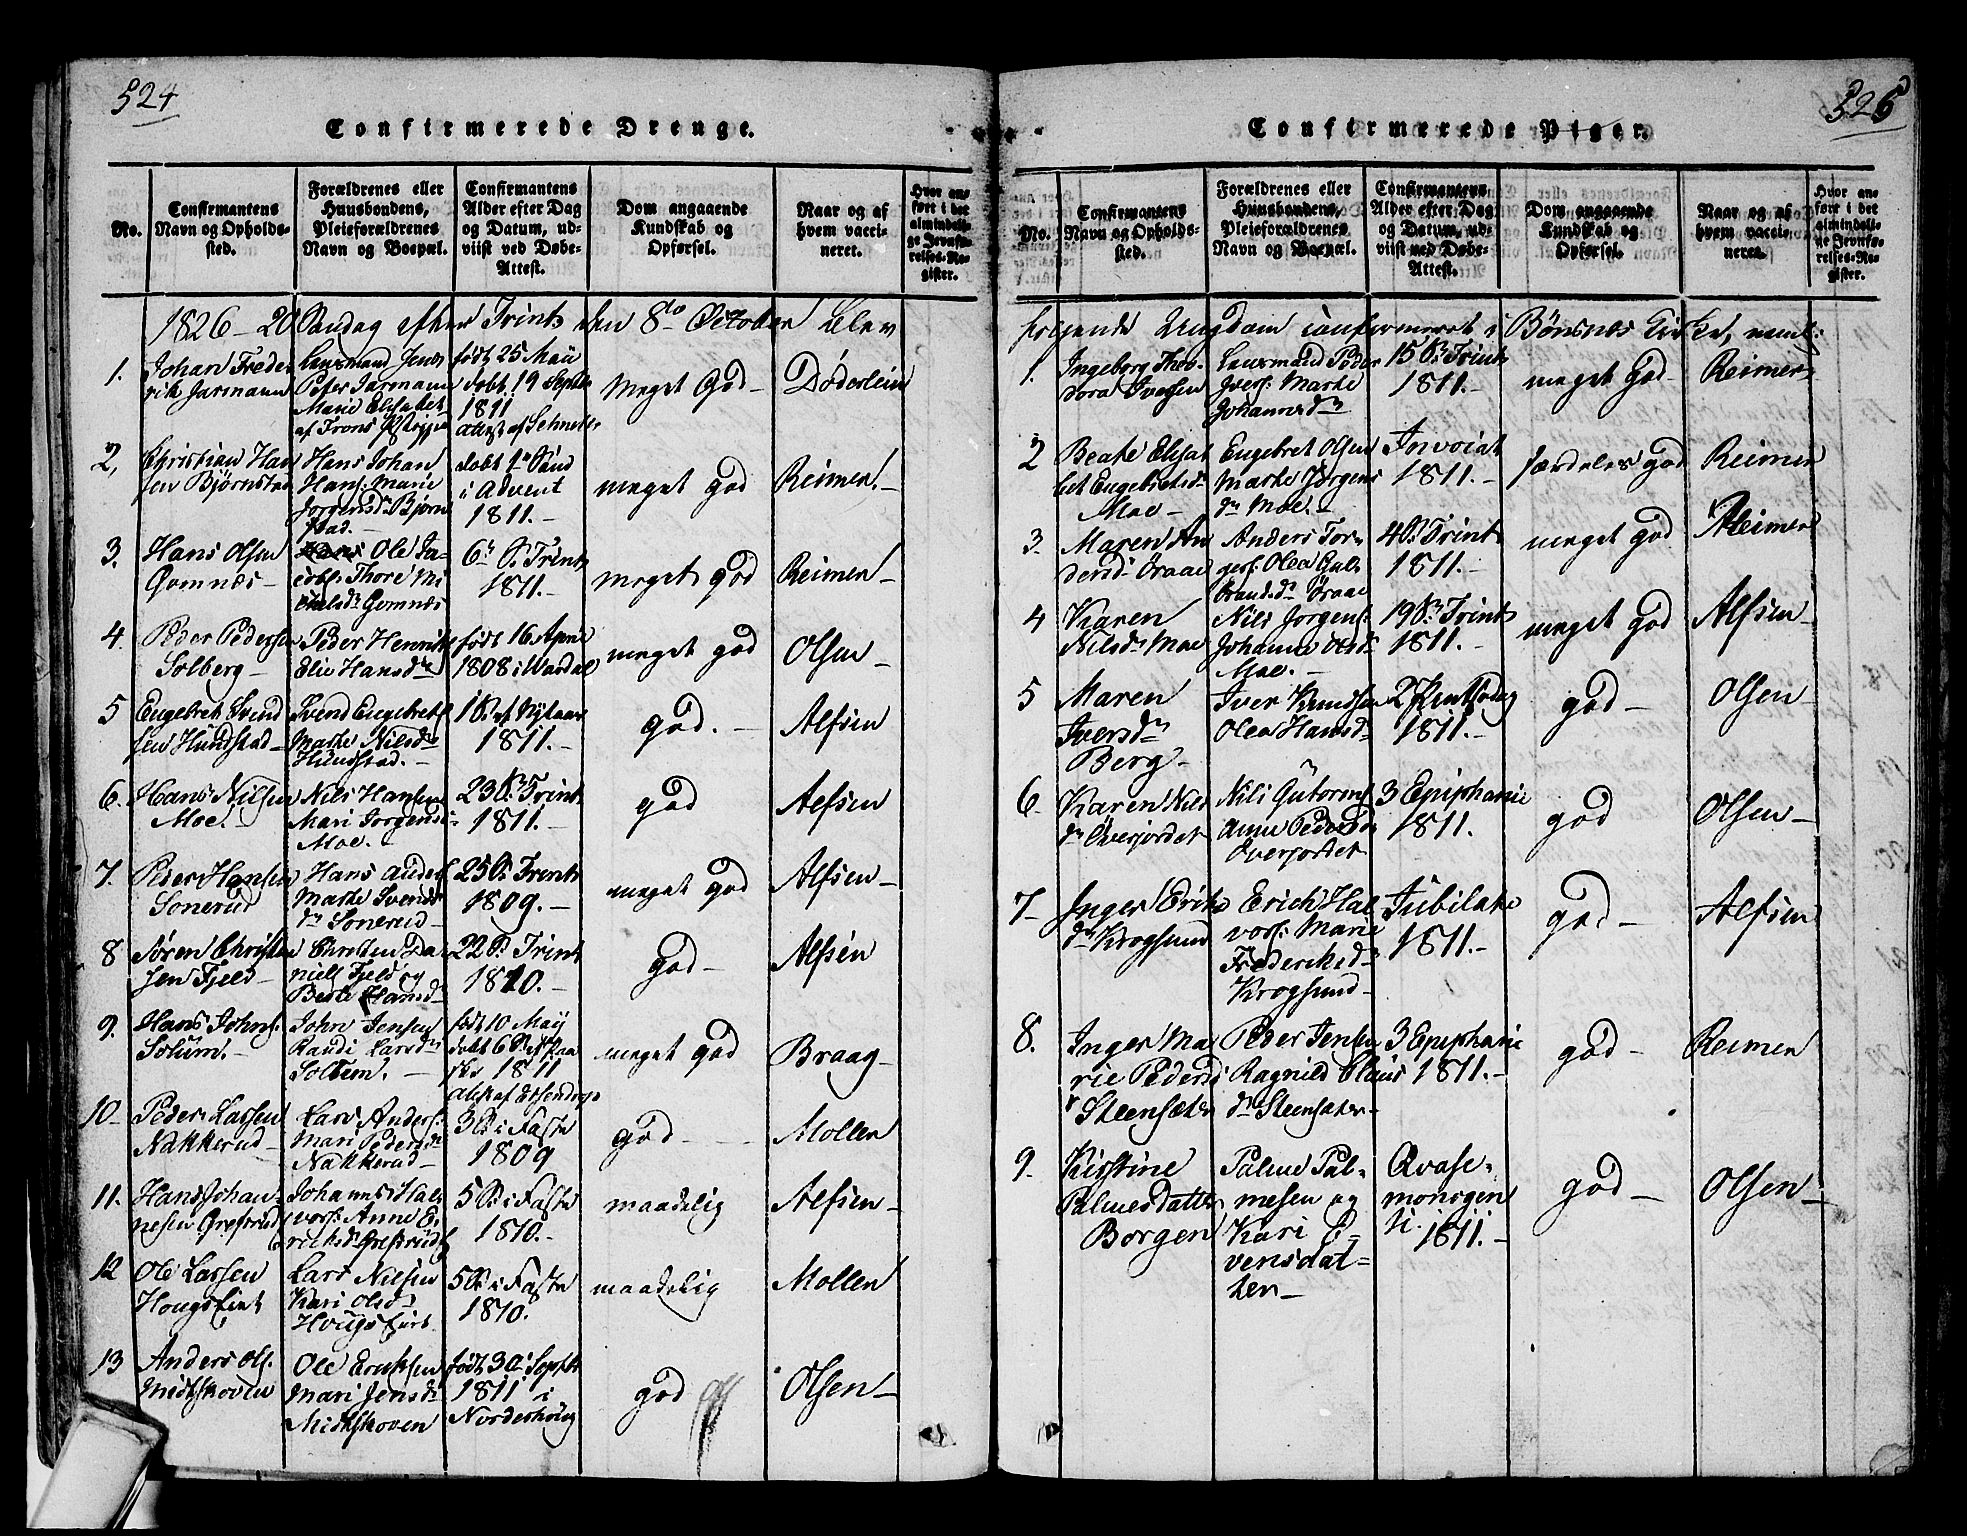 524
Confirmerede Drenge.
No.
Confirmantens
Navn og Opholds-
sted.
Forældrenes eller
Huusbondens,
Pleieforældrenes
Navn og Boepæl.
Confirmantens
Alder efter Dag
og Datum, ud-
viist ved Døbe-
Attest.
Dom angaaende
Kundskab og
Opførsel.
Naar og af
hvem vacci-
neret.
Hvor an-
ført i det
almindeli-
ge Jevnfø-
relses-Re-
gister.
1826 – 20 Søndag efter Trint. den 8de October blev
1.
Johan Frede
rik Jarmann
Lensmand Jens
Peter Jarmann
Marie Elisabet
født 25 Maii
døbt 19 Septbr
1811
Meget God –
Døderlein
2,
Christian Han
sen Bjørnstad
Hans Johan
Hans. Marie
Jørgensdr Bjørn
stad. –
døbt 1e Sønd
i Advent
1811. –
meget god
Reimer. –
3.
Hans Olsen
Gomnæs –
Ole Ja-
cobs. Thore Mi
chelsdr Gomnæs
6te S. Trint
1811. –
meget god
Reimer. –
4.
Peder Pedersen
Solberg –
Peder Henrik
Elie Hansdr
født 16 April
1808 i Wardal
meget god
Olsen –
5
Engebret Svend
sen Hundstad –
Svend Engebrets
Marthe Nilsdr
Hundstad. –
1 S. ef Nytaar
1811. –
god. –
Alfsen
6.
Hans Nilsen
Moe. –
Nils Hansen
Mari Jorgensd
Moe. –
23 S. Trint
1811. –
god
Alfsen
7.
Peder Hansen
Sonerud
Hans Anders
Marthe Svends
dr Sonerud –
25 S. Trint
1809. –
meget god
Alfsen –
8
Søren Christen
sen Fjeld –
Christen Da
niels Fjeld og
Berte Hansdr
22 S. Trint
1810. –
god –
Alfsen
9.
Hans Johns.
Solum. –
John Jensen
Randi Larsdr
Soleum. –
født 10 Maij
døbt 6 S. ef Paa
ske 1811
meget god
Braag –
10 –
Peder Larsen
Nakkerud –
Lars Anders.
Mari Pedersdr
Nakkerud –
3 S. i Faste
1809
god –
Mollen
11.
Hans Johan-
nesen Græsrud
Johannes Hal
vors. Anne E.
richsdr Græsrud
5 S. i Faste
1810. –
maadelig
Alfsen –
12
Ole Larsen
Hougsfiert
Lars Nilsen
Kari Olsdr
Hougsfiert
5 S. i Faste
1810.
maadelig
Mollen
13
Anders Ols.
Midtskoven
Ole Erichsen
Mari Jensdr
Midtskoven
født 30 Septbr
1811 i
Norderhoug
god
Olsen –
525
Confirmerede Piger.
No.
Confirmantens
Navn og Opholds-
sted.
Forældrenes eller
Huusbondens,
Pleieforældrenes
Navn og Boepæl.
Confirmantens
Alder efter Dag
og Datum, ud-
viist ved Døbe-
Attest.
Dom angaaende
Kundskab og
Opførsel.
Naar og af
hvem vacci-
neret.
Hvor an-
ført i det
almindeli-
ge Jevnfø-
relses-Re-
gister.
følgende Ungdom confirmeret i Bønsnæs Kirke, neml:
1.
Ingeborg Theo-
dora Iversen
Lensmand Peder
Ivers. Marthe
Johannesdr
15 S. Trint
1811. –
meget God –
Reimer
2
Beate Elisa
bet Engebretsdr
Moe –
Engebret Olsen
Marthe Jørgens
dr Moe. –
Invocat
1811. –
særdeles god
Reimer
3.
Maren An
dersd. Øraae
Anders Tor-
gers. Olea Gul
brandsdr Øraae
4 S. Trint
1811. –
meget god
Reimer
4
Karen
Nilsdr Moe
Nils Jorgens.
Johanna Olsd.
Moe. –
19 S. Trint
1811. –
meget god
Alfsen –
5
Maren
Iversdr
Berg –
Iver Knudsen
Olea Hansd
2 Pintsedag
1811. –
god –
Olsen
6.
Karen Nils
dr Øverjordet
Nils Gutorms
Anne Pedersdr
Overjordet
3 Epiphanie
1811.
god
Olsen –
7 –
Inger Eriks
dr Krogsund
Erich Hal
vors. Marie
Frederiksd
Krogsund –
Jubilate
1811. –
god –
Alfsen
8.
Inger Ma
rie Pedersd
Steensæter
Peder Jensen
Ragnild Claus
dr Steensæter –
3 Epiphanie
1811. –
god –
Reimer
9.
Kirstine
Palmesdatter
Borgen
Palme Pal-
mesen og
Kari E-
vensdat-
ter –
Qvase-
monogen
ti. 1811. –
god –
Olsen –